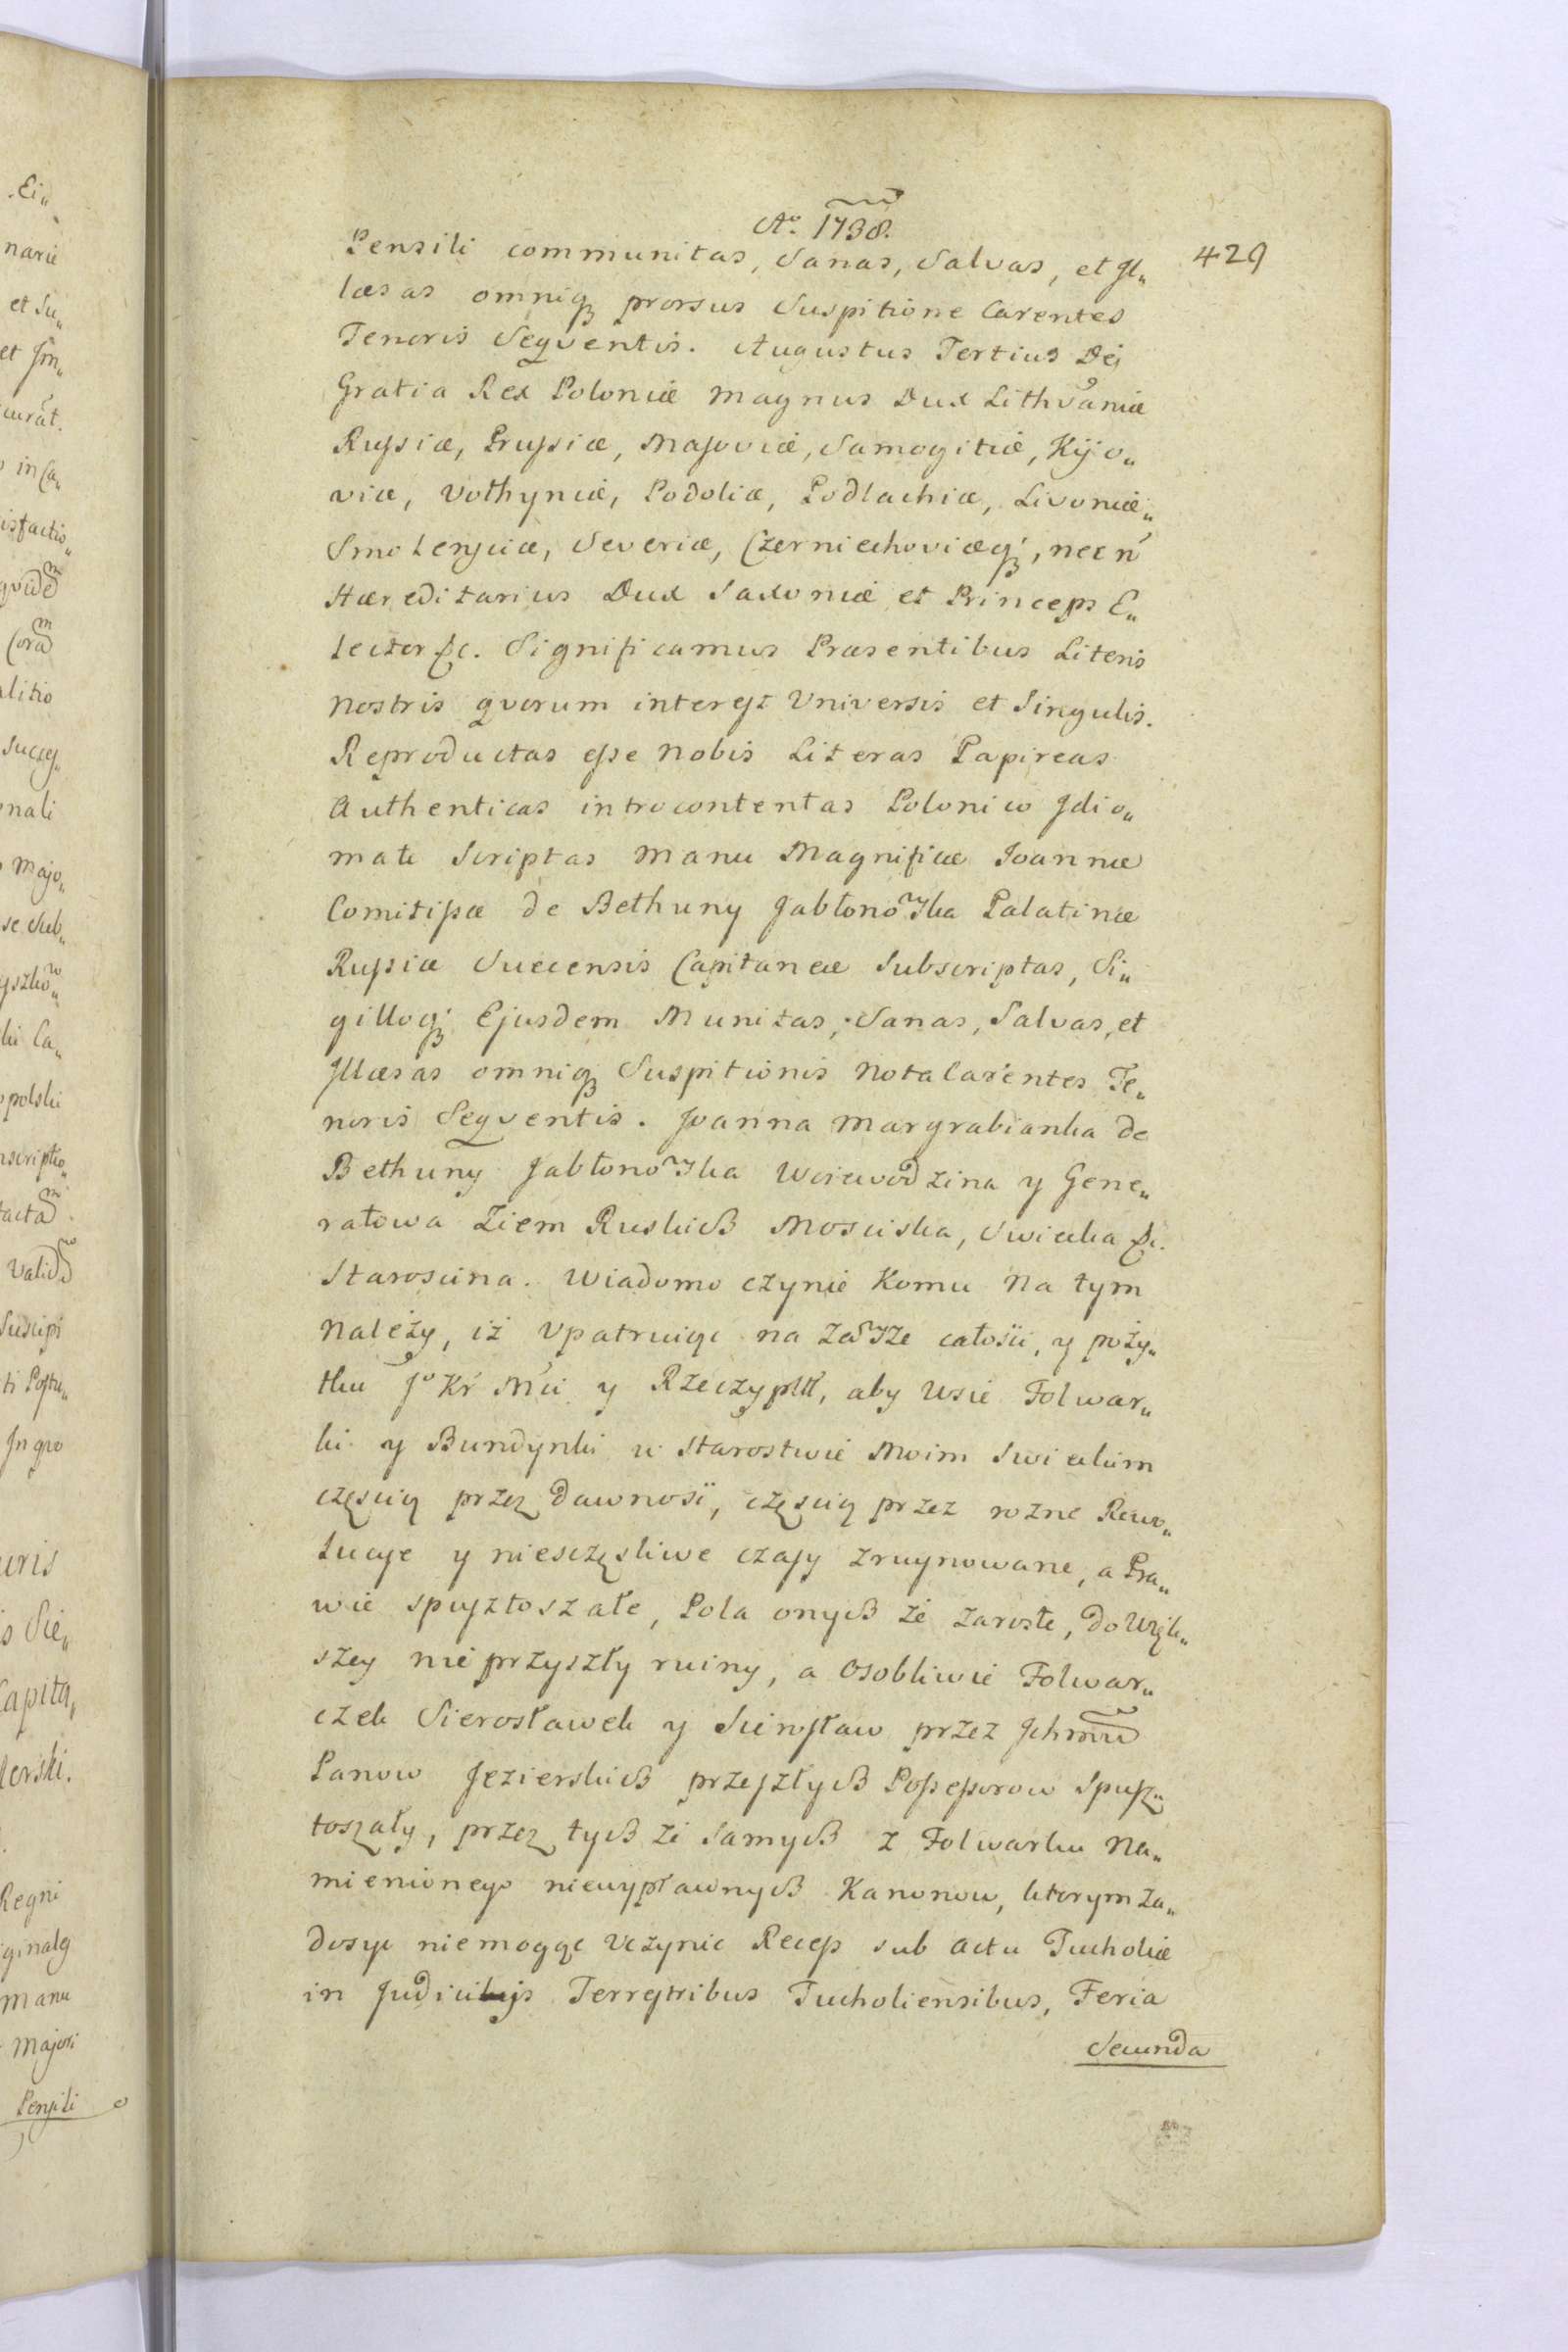 Ao. 1738.
429
Pensili communitas, Sanas, Salvas, et Il„
læsas omniq3 prorsus Suspitione Carentes
Tenoris Seqventis. Augustus Tertius Dei
Gratia Rex Poloniæ Magnus Dux Lithvaniæ
Russiæ, Prussiæ, Masoviæ, Samogitiæ, Kijo„
viæ, Volhyniæ, Podoliæ, Podlachiæ, Livoniæ„
Smolensciæ, Severiæ, Czerniechoviæq3, nec n
Hæreditarius Dux Saxoniæ et Princeps E„
lector &c. Significamus Præsentibus Literis
Nostris qvorum interest Vniversis et Singulis.
Reproductas esse Nobis Literas Papireas
Authenticas introcontentas Polonico Idio„
mate Scriptas Manu Magnificæ Joannæ
Comitissæ de Bethuny Jabłonowska Palatinæ
Russiæ Suecensis Capitaneæ Subscriptas, Si„
gilloq3 Ejusdem Munitas, Sanas, Salvas, et
Illæsas omniq3 Suspitionis Nota Carentes Te„
noris Seqventis. Joanna Margrabianka de
Bethuny Jabłonowska Woiewodzina y Gene„
rałowa Ziem Ruskich Mosciska, Swiecka &c.
Staroscina. Wiadomo czynie Komu Na tym
Należy, iż Vpatruiąc na zawsze całości, y poży„
tku Jo Kr Mci y Rzeczyplt, aby Wsie Folwar„
ki y Bundynki w Starostwie Moim Swieckim
częscią przez dawnosć, częscią przez rozne Rewo„
lucye y niesczęsliwe czasy zruynowane, a Pra„
wie spusztoszałe, Pola onych że zarosłe, do Węk„
szey nie przyszły ruiny, a Osobliwie Folwar„
czek Sierosławek y Sierosław przez Ichmw
Panow Jezierskich przeszłych Possessorow Spusz„
toszały, przez tych ze Samych z Folwarku Na„
mienionego niewypławnych Kanonow, ktorym za„
dosyc niemogąc Vczynic Recess sub Actu Tucholiæ
in Judiciis Terrestribus Tucholiensibus, Feria
Secunda